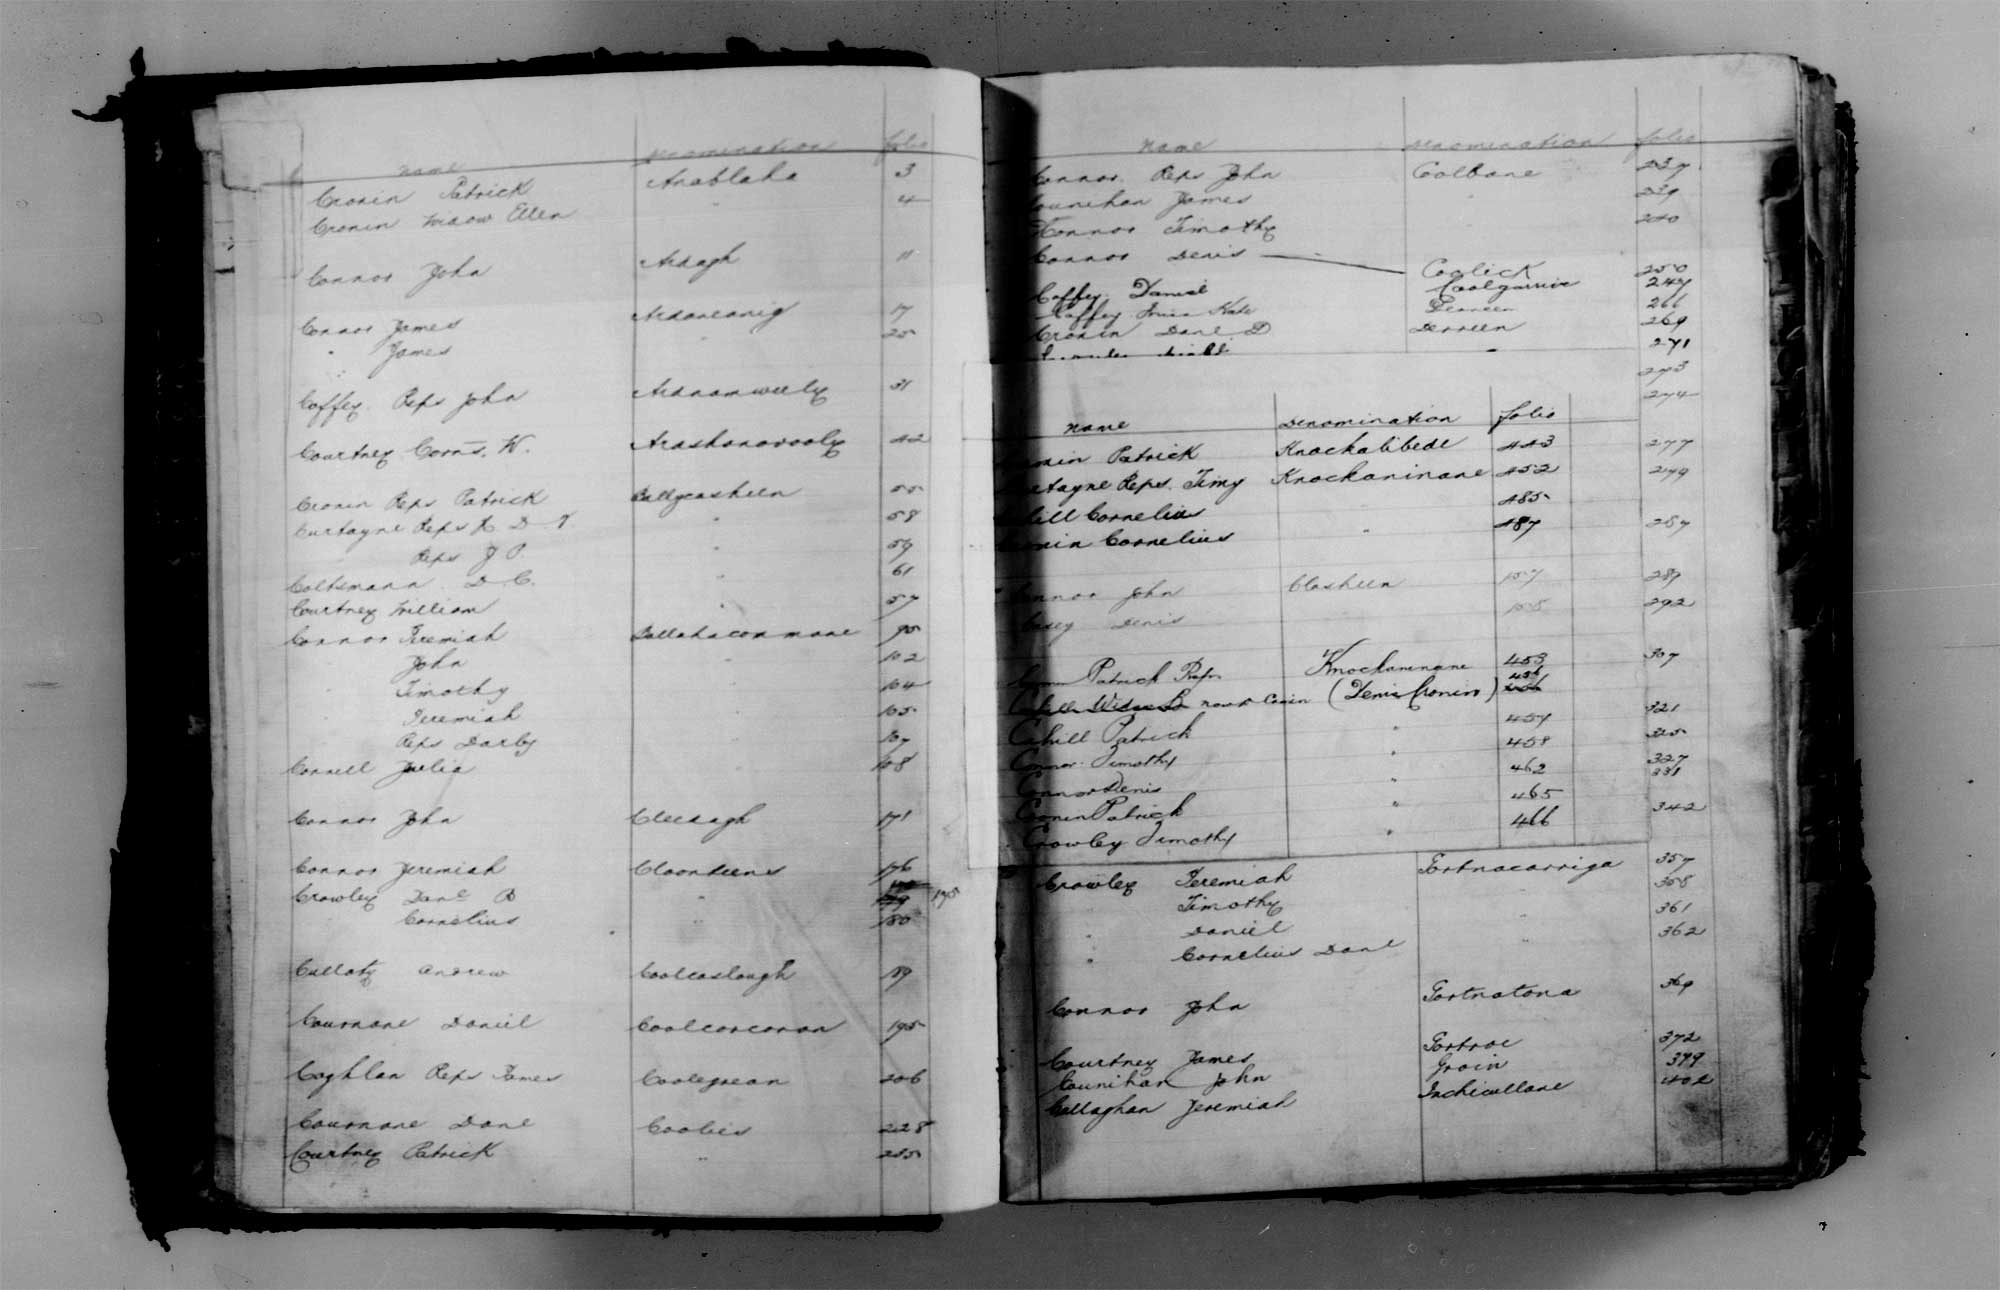 name Denomination folio
Cronin Patrick Anablaha 3
Cronin Widow Ellen " 4
Connor John Ardagh 11
Connor James Ardaneanig 17
" James " 25
Coffey Reps John Ardnamweely 31
Courtney Corns. W. 42
Cronin Reps Patrick Ballycasheen 55
Curtayne Reps D 58
Reps J P. " 59
Coltsmann D. C. " 61
Courtney William " 57
Connor Jeremiah Ballahacommane 95
John " 102
Timothy 104
Jeremiah 105
Reps Darby 107
Connell Julia 108
Connor John Cleedagh 171
Connor Jeremiah Cloonteens 176
Crowley Danl B " 179 175
Cornelius " 180
Culloty Andrew Coolcaslough 189
Cournane Daniel Coolcorcoran 195
Coghlan Reps James Coolegrean 206
Cournane Danl Coolies 228
Courtney Patrick " 235
name Denomination folio
Connor Reps John Coolbane 237
Counihan James " 239
Connor Timothy 240
Connor Denis Coolick 250
Coffey Daniel Coolgarrive 247
Coffey Kate Derreen 266
Cronin Danl D Derreen 269
271
273
274
name Denomination folio
Cronin Patrick Knockalibede 443 277
Curtayne Reps. Timy Knockaninane 452 279
Cahill Cornelius " 485
Cronin Cornelius " 487 287
Connor John Clasheen 157 289
Casey Denis 158 292
Patrick Reps Knockaninane 453 307
Cahill Widow now (Denis Cronin) 456
Cahill Patrick " 457 321
Connor Timothy 458 325
Connor Denis " 462 327
331
Cronin Patrick " 465
Crowley Timothy " 466 342
Crowley Jeremiah Gortnacarriga 357
" Timothy 358
" Daniel " 361
" Cornelius Danl " 362
Connor John Gortnatona 369
Courtney James Gortroe 372
Counihan John Groin 379
Callaghan Jeremiah Inchicullane 402